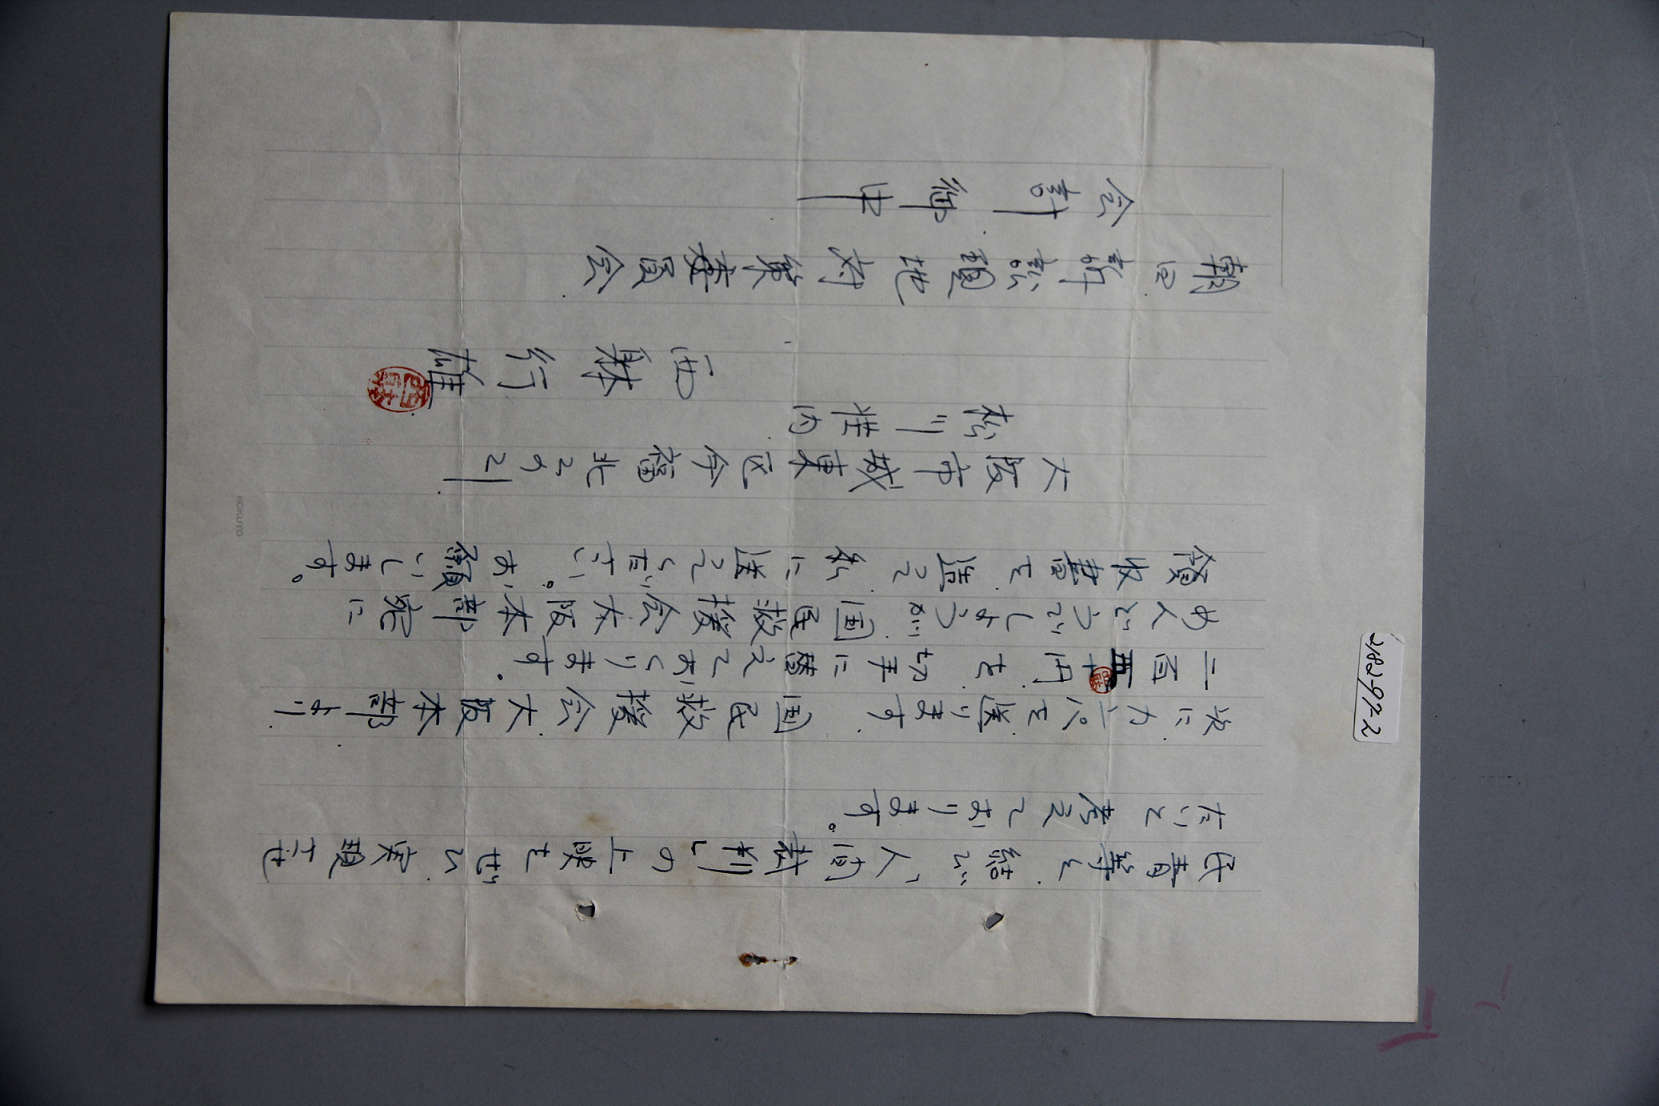 民青等と結び、「人間裁判」の上映をぜひ実現させ
たいと考えております。
次にカンパを送ります。国民救援会大阪本部より
二百 十円を切手に替えております。
めんどうでしょうが国民救援会大阪本部宛に
領収書を造って私に送ってください。お願いします。
大阪市城東区今福北2の21
松川荘内
西躰行雄
朝日訴訟現地対策委員会
会計御中
KOKUYO
2482-97-2